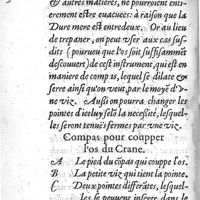 & d'autres matieres, ne pourroient enti-
erement estre euacuees: à raison que la
Dure mere est entredeux. Or au lieu
de trepaner, on peut vser aux cas sus-
dits (pourueu que l'os soit suffisammēt
descouuert) de cest instrument, qui est en
maniere de compas, lequel se dilate & se
serre ainsi qu'on veut par le moyē d'v-
ne viz. Aussi on pourra changer les
pointes d'iceluy selō la necessité, lesquel-
les seront tenuës fermes par vne viz.
Compas pour coupper
l'os du Crane.
A Le pied du cōpas qui coupe l'os.
B La petite viz qui tient la pointe.
C Deux pointes differātes, lesquel-
les se peuuent inserer dans le